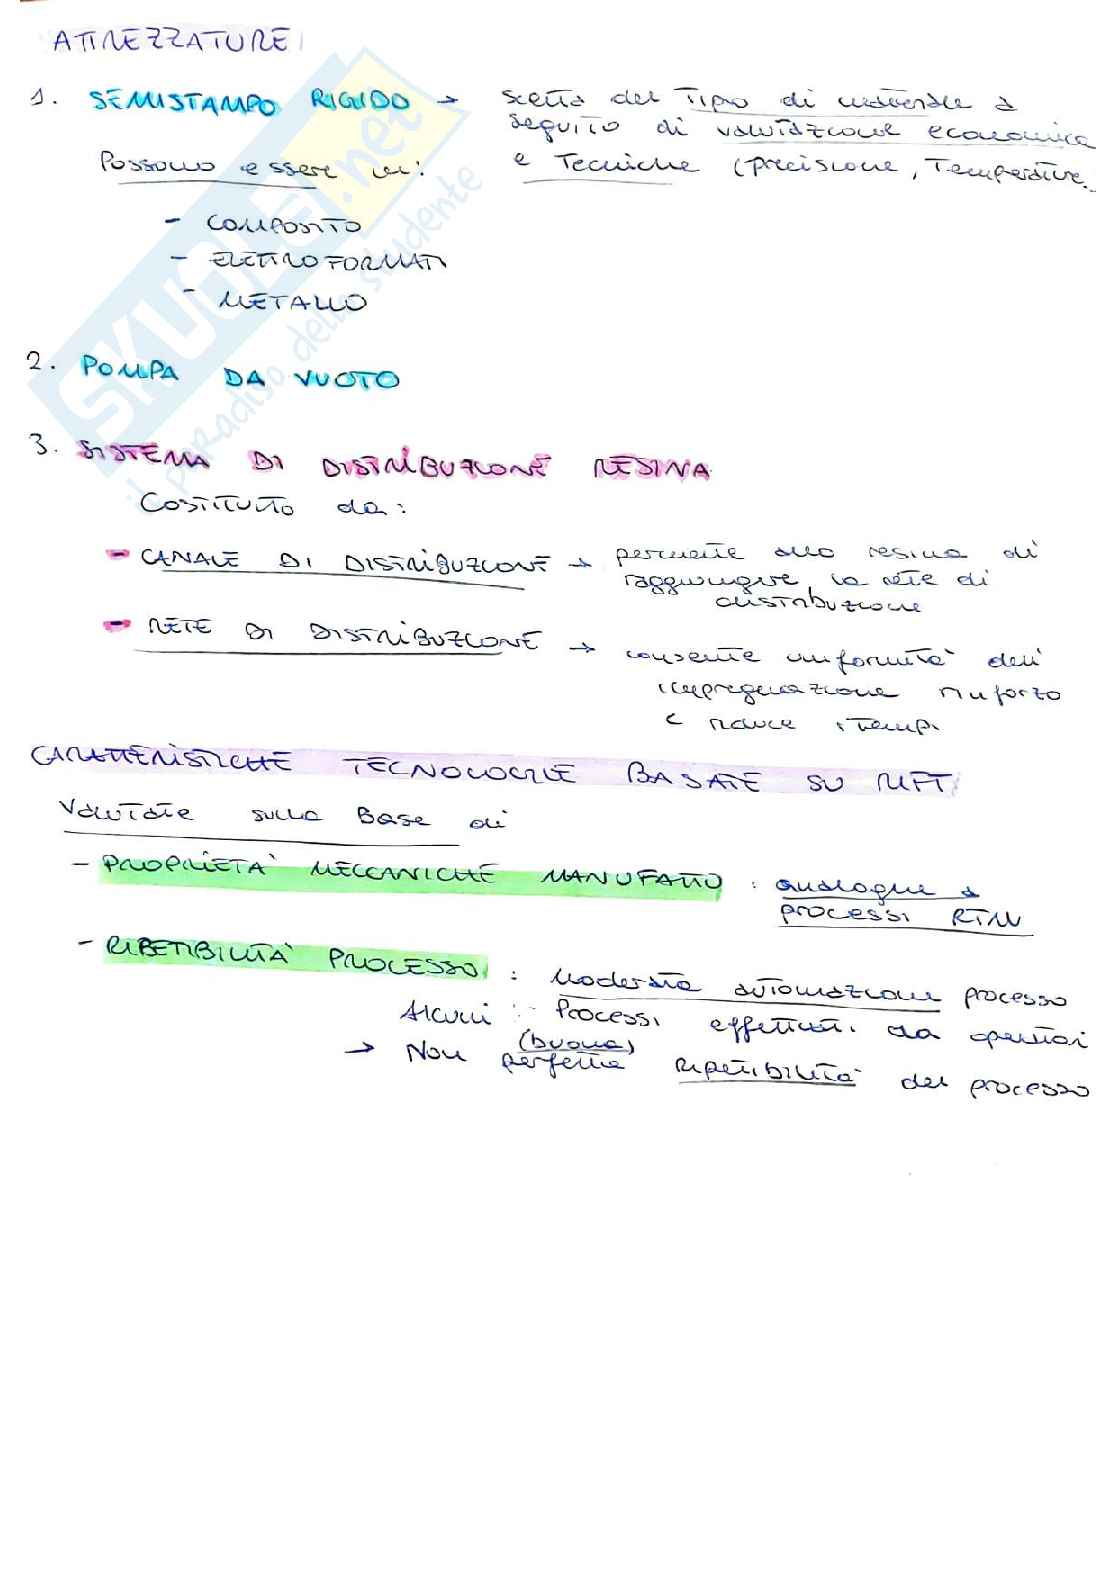 ATTREZZATURE
1. SEMISTAMPO RIGIDO → scelta del Tipo di materiale a
seguito di valutazione economica
Possono essere in: e Tecniche (precisione, Temperature.)
- COMPOSITO
- ELETTROFORMATI
- METALLO
2. POMPA DA VUOTO
3. SISTEMA DI DISTRIBUZIONE RESINA
Costituito da:
- CANALE DI DISTRIBUZIONE → permette alla resina di
raggiungere la rete di
distribuzione
- RETE DI DISTRIBUZIONE → consente uniformità dell'
impregnazione rinforzo
e riduce i tempi
CARATTERISTICHE TECNOLOGIE BASATE SU MFT
Valutate sulla Base di
- PROPRIETÀ MECCANICHE MANUFATTO : analoghe a
processi RTM
- RIPETIBILITÀ PROCESSO : Moderata automazione processo
Alcuni : Processi effettuati da operatori
→ Non perfetta (buona) ripetibilità del processo
SKUOLA.net
il paradiso dello studente